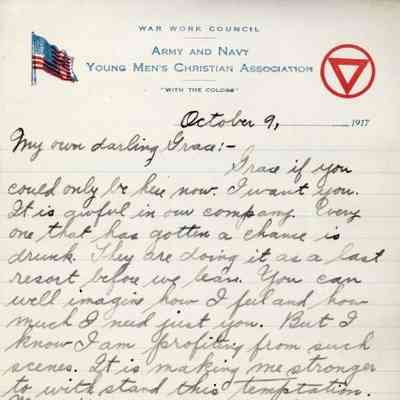 WAR WORK COUNCIL
ARMY AND NAVY
YOUNG MEN'S CHRISTIAN ASSOCIATION
"WITH THE COLORS"
October 9, 1917
My own darling Grace:-
Grace if you
could only be here now. I want you.
It is awful in our company. Every
one that has gotten a chance is
drunk. They are doing it as a last
resort before we leave. You can
well imagine how I feel and how
much I need just you. But I
know I am profiting from such
scenes. It is making me stronger
to with stand this temptation.